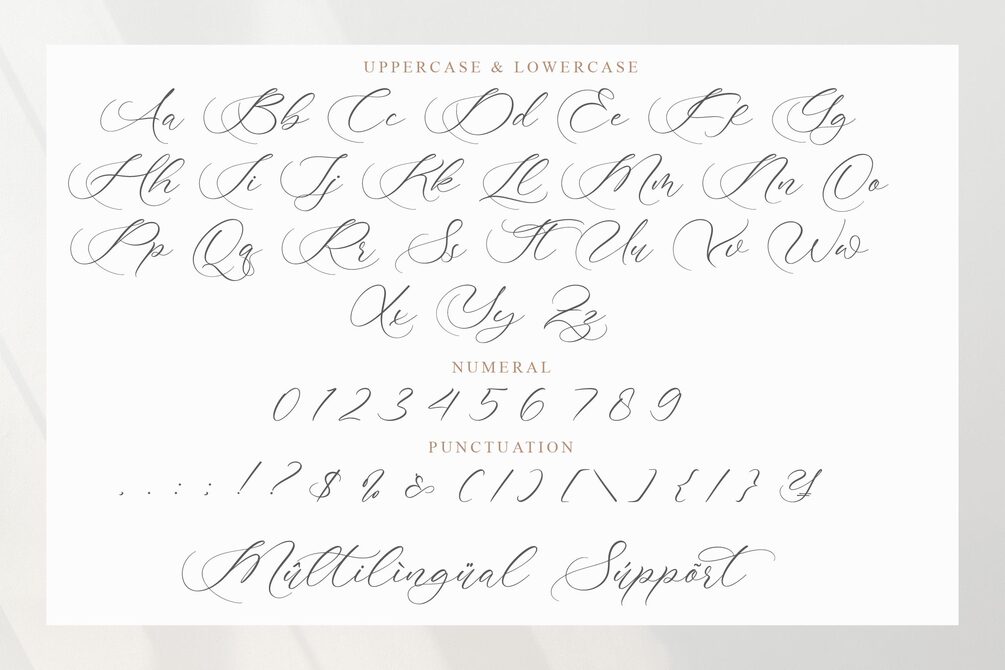 UPPERCASE & LOWERCASE
Aa Bb Cc Dd Ee Ff Gg
Hh Ii Jj Kk Ll Mm Nn Oo
Pp Qq Rr Ss Tt Uu Vv Ww
Xx Yy Zz
NUMERAL
0 1 2 3 4 5 6 7 8 9
PUNCTUATION
, . : ; ! ? $ % & ( / ) [ \ ] { / } ¥
Mûltilìngüal Súppõrt